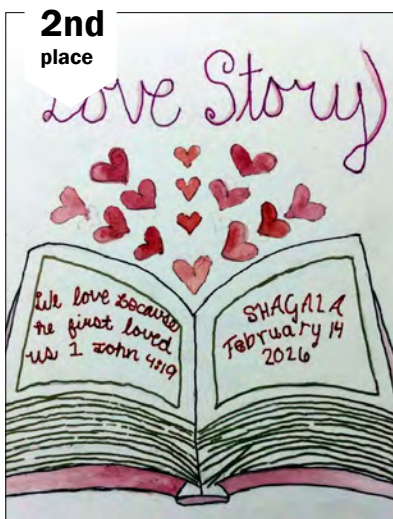 2nd
place
Love Story
We love because
he first loved
us 1 John 4:19
SHAGALA
February 14
2026